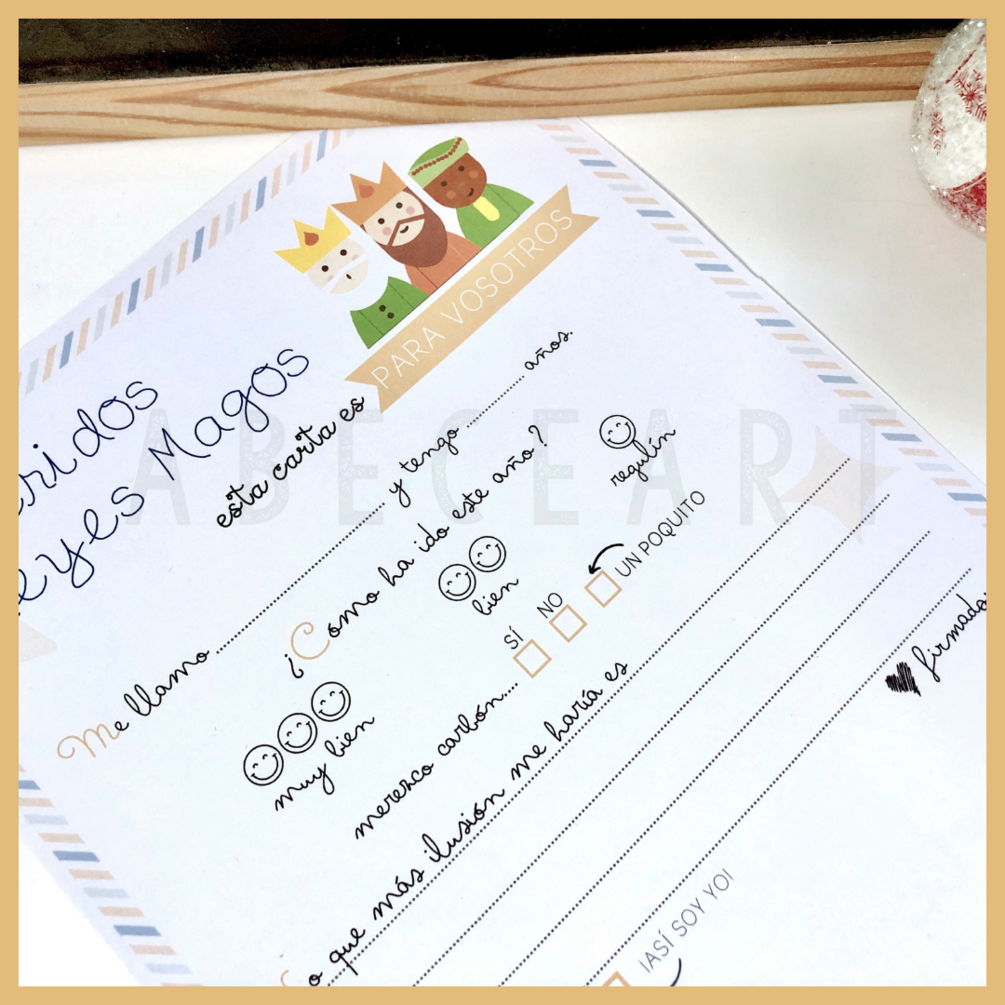 PARA VOSOTROS
eridos
eyes Magos
esta carta es
Me llamo ........ y tengo ........ años.
¿Cómo ha ido este año?
muy bien
bien
regulín
merezco carbón...
SÍ
NO
UN POQUITO
o que más ilusión me haría es
♥ firmado:
¡ASÍ SOY YO!
ABECEART